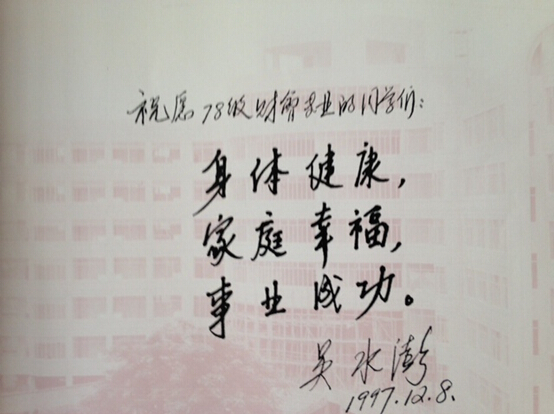 祝愿78级财会专业的同学们：
身体健康，
家庭幸福，
事业成功。
吴水澎
1997.12.8.